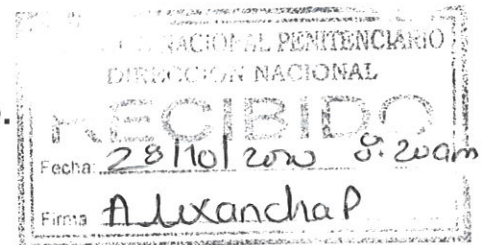 NACIONAL PENITENCIARIO
DIRECCION NACIONAL
RECIBIDO
Fecha: 28/10/2020 8:20am
Firma AlixandraP